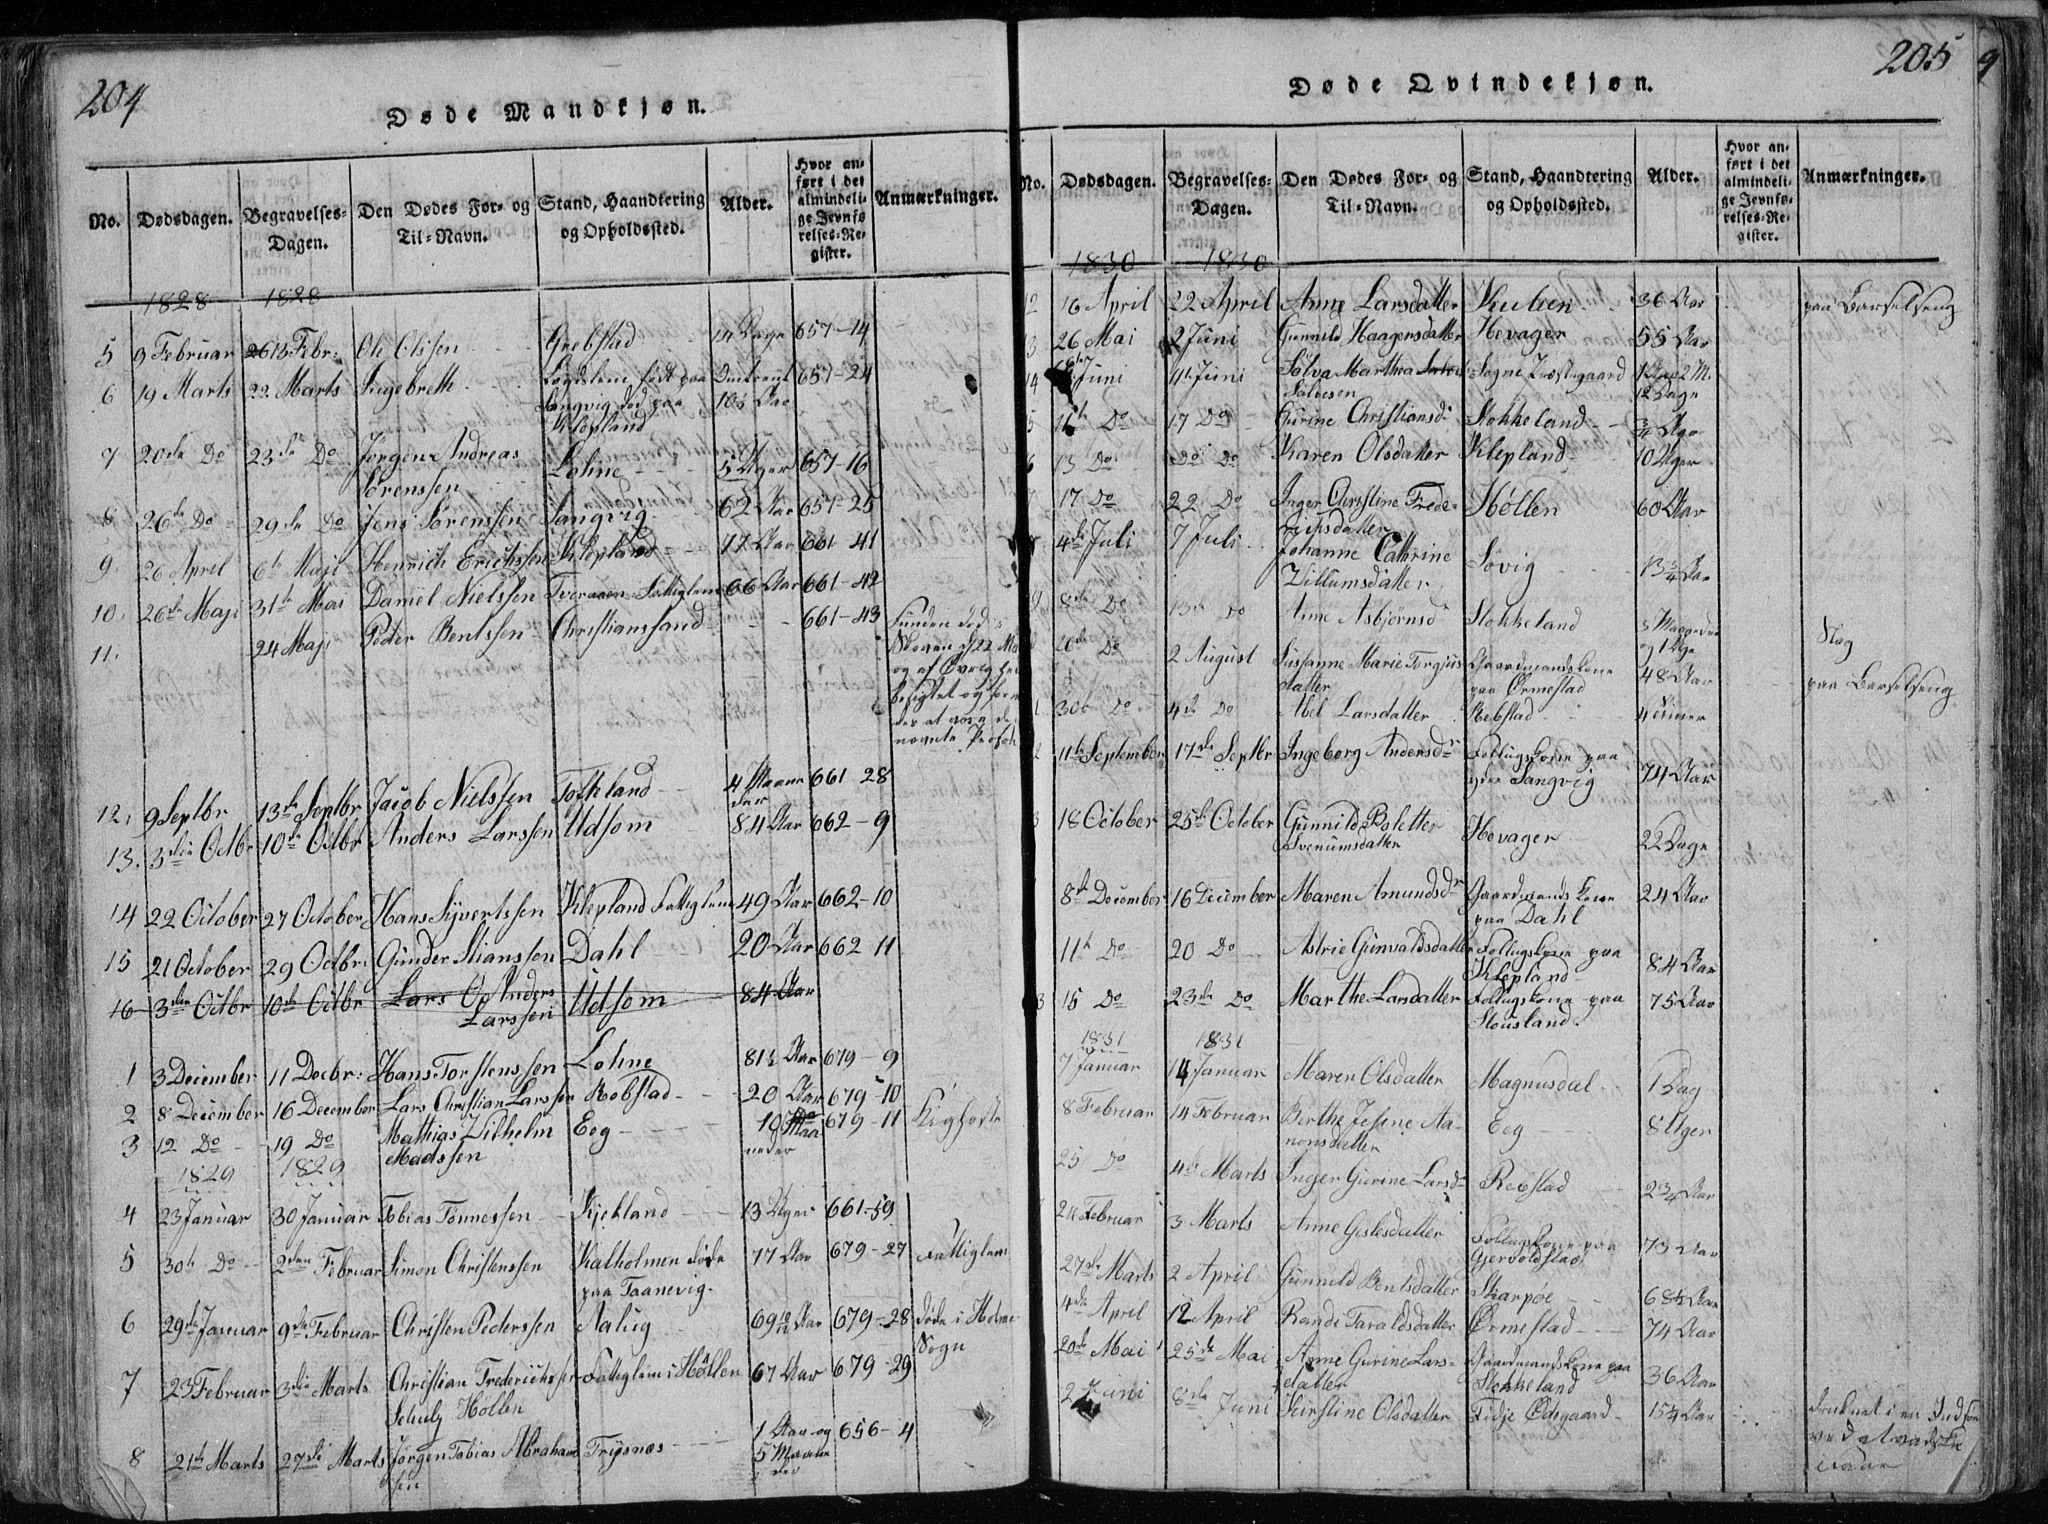 204
Døde Mandkjøn.
No. Dødsdagen. Begravelses-Dagen. Den Dødes For- og Til-Navn. Stand, Haandtering og Opholdssted. Alder. Hvor anført i det almindelige Jevnførelses-Register. Anmærkninger.
1828 1828
5 9 Februar 13 Febr: Ole Olssen Grebstad 14 Dage 657-14
6 19 Marts 22 Marts Ingebreth født paa Omtrent 657-24
Langvig død paa 105 Aar
Klepland
7 20de Do 23de Do Jørgen Andreas Lohne 5 Uger 657-16
Sørenssen
8 26de Do 29de Do Jens Sørenssen Langvig 62 Aar 657-25
9. 26 April 6te Maji Henrich Erichssen Klepland 77 Aar 661-41
10. 26de Maji 31te Mai Daniel Nielssen Tveraaen Fattiglem 66 Aar 661-42
11. 24 Maji Peder Bentssen Christianssand 661-43 Funden død i
Skoven d 22 Mai
og af Øvrighed
besigtet og
at være
nævnte Person
12. 9 Septbr 13de Septbr Jacob Nielssen Tofteland 4 Maaneder 661 28
13. 3die Octbr 10de Octbr Anders Larssen Udsom 84 Aar 662-9
14 22 October 27 October Hans Syvertssen Klepland Fattiglem 49 Aar 662-10
15 21 October 29 Octbr: Gunder Stianssen Dahl 20 Aar 662 11
16 3die Octbr 10de Octbr Lars Anders Udsom 84 Aar
Larssen
1 3 December 11 Decbr: Hans Torstenssen Lohne 81½ Aar 679-9
2 8 December 16 December Lars Christian Larssen Rebstad 20 Aar 679-10
3 12 Do 19 Do Mathias Vilhelm Eeg 10 Maaneder 679-11 Kighoste
Madssen
1829 1829
4 23 Januar 30 Januar Tobias Tønnessen Kjelland 13 Uger 661-59
5 30te Do 2den Februar Simon Christenssen Kalholmen døde 77 Aar 679-27 Fattiglem
paa Taanevig
6 29de Januar 9de Februar Christen Pederssen Aalug 69 Aar 679-28 døde i Holme
Sogn
7 23 Februar 3die Marts Christian Frederichssen Fattiglem i Høllen 67 Aar 679-29
Schulz Høllen
8 21te Marts 27de Marts Jørgen Tobias Abraham Trysnæs 1 Aar og 656-4
sen 5 Maaneder
205
Døde Qvindekjøn.
No. Dødsdagen. Begravelses-Dagen. Den Dødes For- og Til-Navn. Stand, Haandtering og Opholdssted. Alder. Hvor anført i det almindelige Jevnførelses-Register. Anmærkninger.
1830 1830
12 16 April 22 April Anne Larsdatter 36 Aar paa Barselseng
13 26 Mai 2 Juni Gunnild Haagensdatter Hevager 55 Aar
14 Juni 11te Juni Sølva Marthea Sogne Præstegaard 1 Aar 2 M.
Salvesen 12 Dage
5 11te Do 17 Do Gurine Christiansd Stokkeland ¾ Aar
6 13 Do Do Do Karen Olsdatter Klepland 10 Uger
17 Do 22 Do Inger Christine Frede- Høllen 60 Aar
richsdatter
4de Juli 7 Juli Johanne Cathrine Søvig 13¾ Aar
Villumsdatter
8de Do 13de Do Anne Asbjørnsd Stokkeland Maaneder
og 1 Uge
Do 2 August Susanne Marie Torgjus Gaardmandskone 48 Aar paa Barselseng
datter paa Ørmestad
30te Do 4de Do Abel Larsdatter Rebstad 4 Timer
11te September 17de Septbr Ingeborg Andersdr Follugskone paa 74 Aar
ydre Langvig
18 October 25de October Gunnild Bolette Hevager 22 Dage
Svenumsdatter
8de December 16 December Maren Amundsdr Gaardmands Kone 24 Aar
paa Dahl
11te Do 20 Do Astrie Gunvaldsdatter Follugskone paa 84 Aar
Klepland
15 Do 23de Do Marthe Larsdatter Follugskone paa 75 Aar
Stousland.
1831 1831
7 Januar 14 Januar Maren Olsdatter Magnusdal 1 Dag
8 Februar 14 Februar Berthe Jesine Aa- Eeg 8 Uger
nonsdatter
25 Do 4de Marts Inger Gurine Larsd Rebstad 2¾ Aar
24 Februar 3 Marts Anne Gislesdatter Follugskone paa 73 Aar
Gjervoldstad
27de Marts 2 April Gunnild Bentsdatter Skarpøe 68½ Aar
4de April 12 April Rande Taraldsdatter Ørmestad 74 Aar
20de Mai 25de Mai Anne Gurine Lars- Gaardmandskone paa 36 Aar
datter Stokkeland
2 Juni 8de Juni Kirstine Olsdatter Tidje Ødegaard 15¼ Aar druknet i en Indsøe